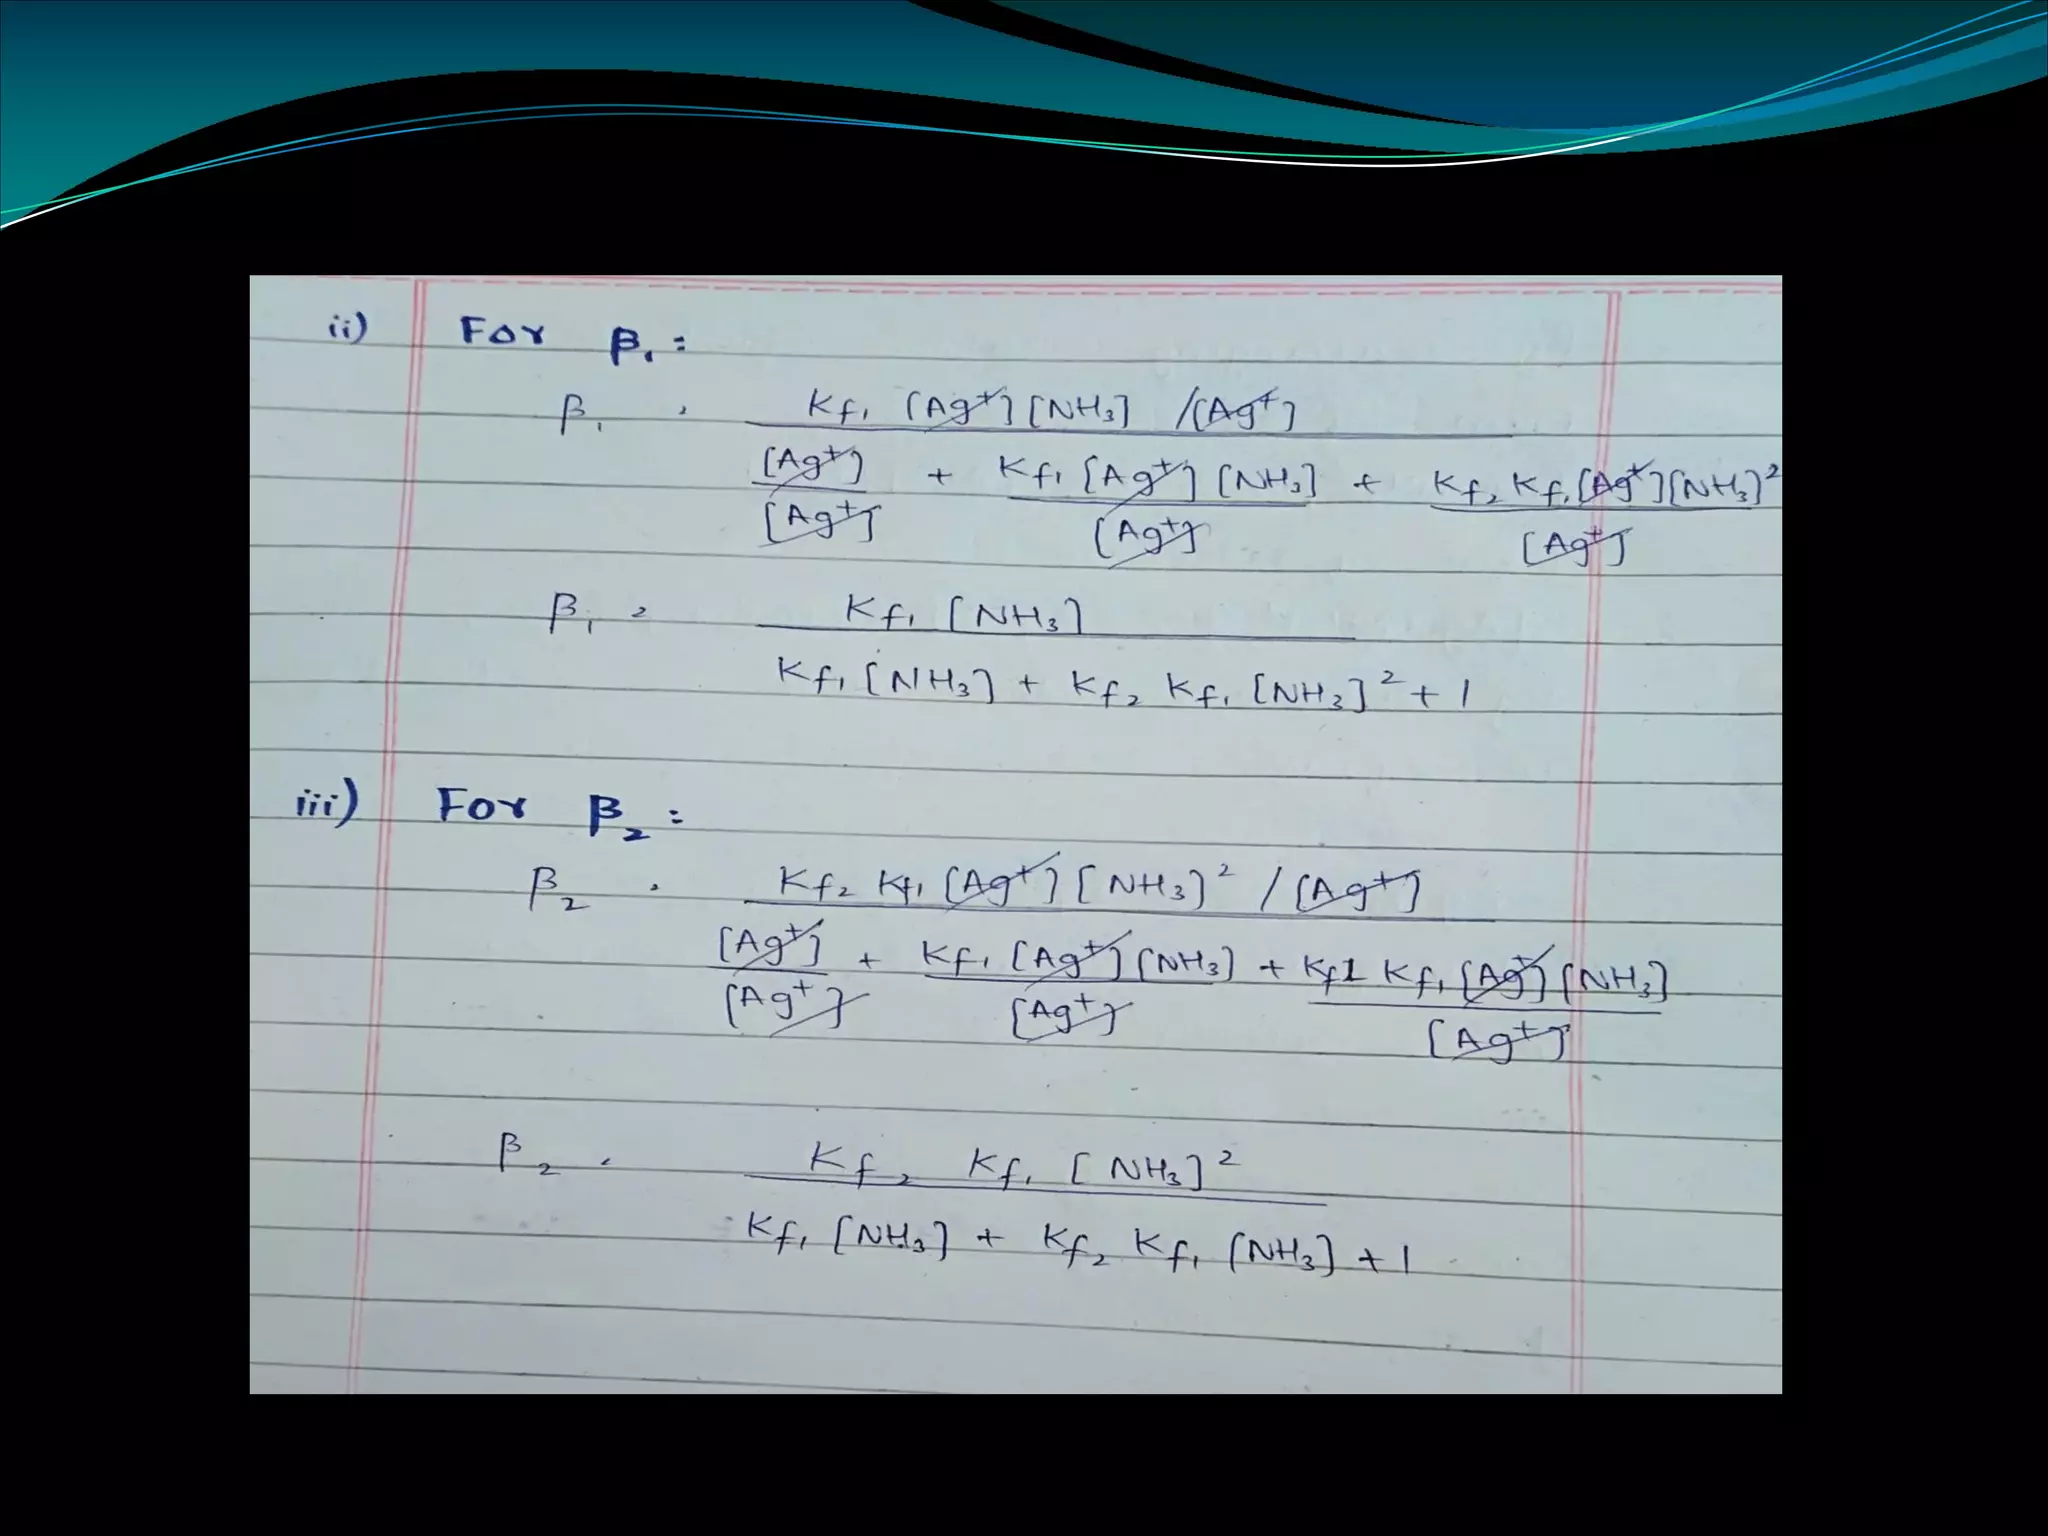 ii) For β₁ =
β₁ = Kf₁ [Ag⁺] [NH₃] / [Ag⁺]
[Ag⁺] + Kf₁ [Ag⁺] [NH₃] + Kf₂ Kf₁ [Ag⁺] [NH₃]²
[Ag⁺] [Ag⁺] [Ag⁺]
β₁ = Kf₁ [NH₃]
Kf₁ [NH₃] + Kf₂ Kf₁ [NH₃]² + 1
iii) For β₂ =
β₂ = Kf₂ Kf₁ [Ag⁺] [NH₃]² / [Ag⁺]
[Ag⁺] + Kf₁ [Ag⁺] [NH₃] + Kf2 Kf₁ [Ag⁺] [NH₃]
[Ag⁺] [Ag⁺] [Ag⁺]
β₂ = Kf₂ Kf₁ [NH₃]²
Kf₁ [NH₃] + Kf₂ Kf₁ [NH₃] + 1